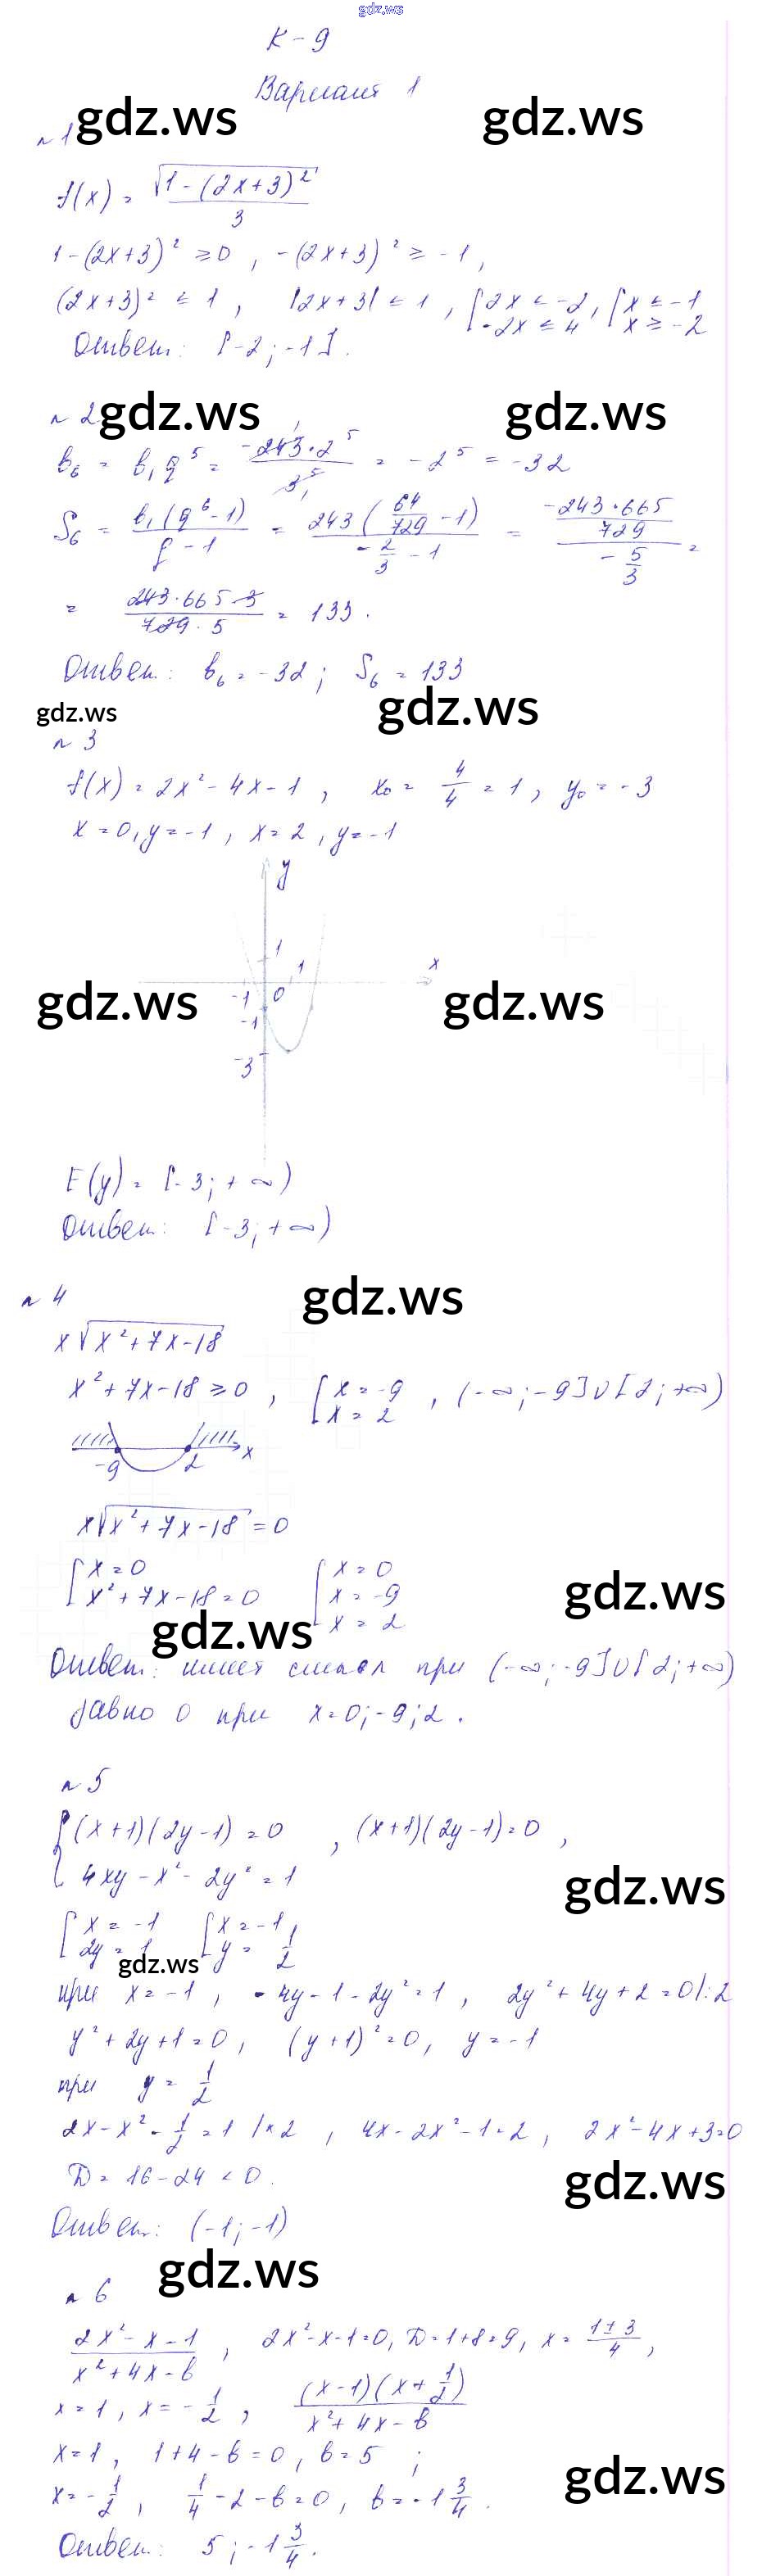 gdz.ws
К-9
Вариант 1
gdz.ws gdz.ws
№1
f(x) = √(1-(2x+3)²) / 3
1-(2x+3)² ≥ 0, -(2x+3)² ≥ -1,
(2x+3)² ≤ 1, |2x+3| ≤ 1, [2x ≤ -2 -2x ≤ 4, [x ≤ -1 x ≥ -2
Ответ: [-2; -1].
№2 gdz.ws gdz.ws
b₆ = b₁q⁵ = -243·2⁵ / 3⁵ = -2⁵ = -32
S₆ = b₁(q⁶-1) / q-1 = 243(64/729 - 1) / -2/3 - 1 = -243·665/729 / -5/3 =
= 243·665·3 / 729·5 = 133.
Ответ: b₆ = -32; S₆ = 133
gdz.ws gdz.ws
№3
f(x) = 2x²-4x-1, x₀ = 4/4 = 1, y₀ = -3
x=0, y=-1, x=2, y=-1
y
1
1 x
gdz.ws gdz.ws
-1 0
-1
-3
E(y) = [-3; +∞)
Ответ: [-3; +∞)
№4 gdz.ws
x√(x²+7x-18)
x²+7x-18 ≥ 0, [x=-9 x=2, (-∞; -9]∪[2; +∞)
-9 2 x
x√(x²+7x-18) = 0
[x=0 x²+7x-18=0 [x=0 x=-9 x=2
gdz.ws
gdz.ws
Ответ: имеет смысл при (-∞; -9]∪[2; +∞)
равно 0 при x=0; -9; 2.
№5
{(x+1)(2y-1)=0 4xy-x²-2y²=1, (x+1)(2y-1)=0,
gdz.ws
[x=-1 2y=1 [x=-1 y=1/2
gdz.ws
при x=-1, -4y-1-2y²=1, 2y²+4y+2=0 |:2
y²+2y+1=0, (y+1)²=0, y=-1
при y=1/2
2x-x²-1/2=1 |×2, 4x-2x²-1=2, 2x²-4x+3=0
D=16-24<0.
gdz.ws
Ответ: (-1; -1)
gdz.ws
№6
2x²-x-1 / x²+4x-b, 2x²-x-1=0, D=1+8=9, x=1±3 / 4,
x=1, x=-1/2, (x-1)(x+1/2) / x²+4x-b
x=1, 1+4-b=0, b=5;
gdz.ws
x=-1/2, 1/4-2-b=0, b=-1 3/4.
Ответ: 5; -1 3/4.